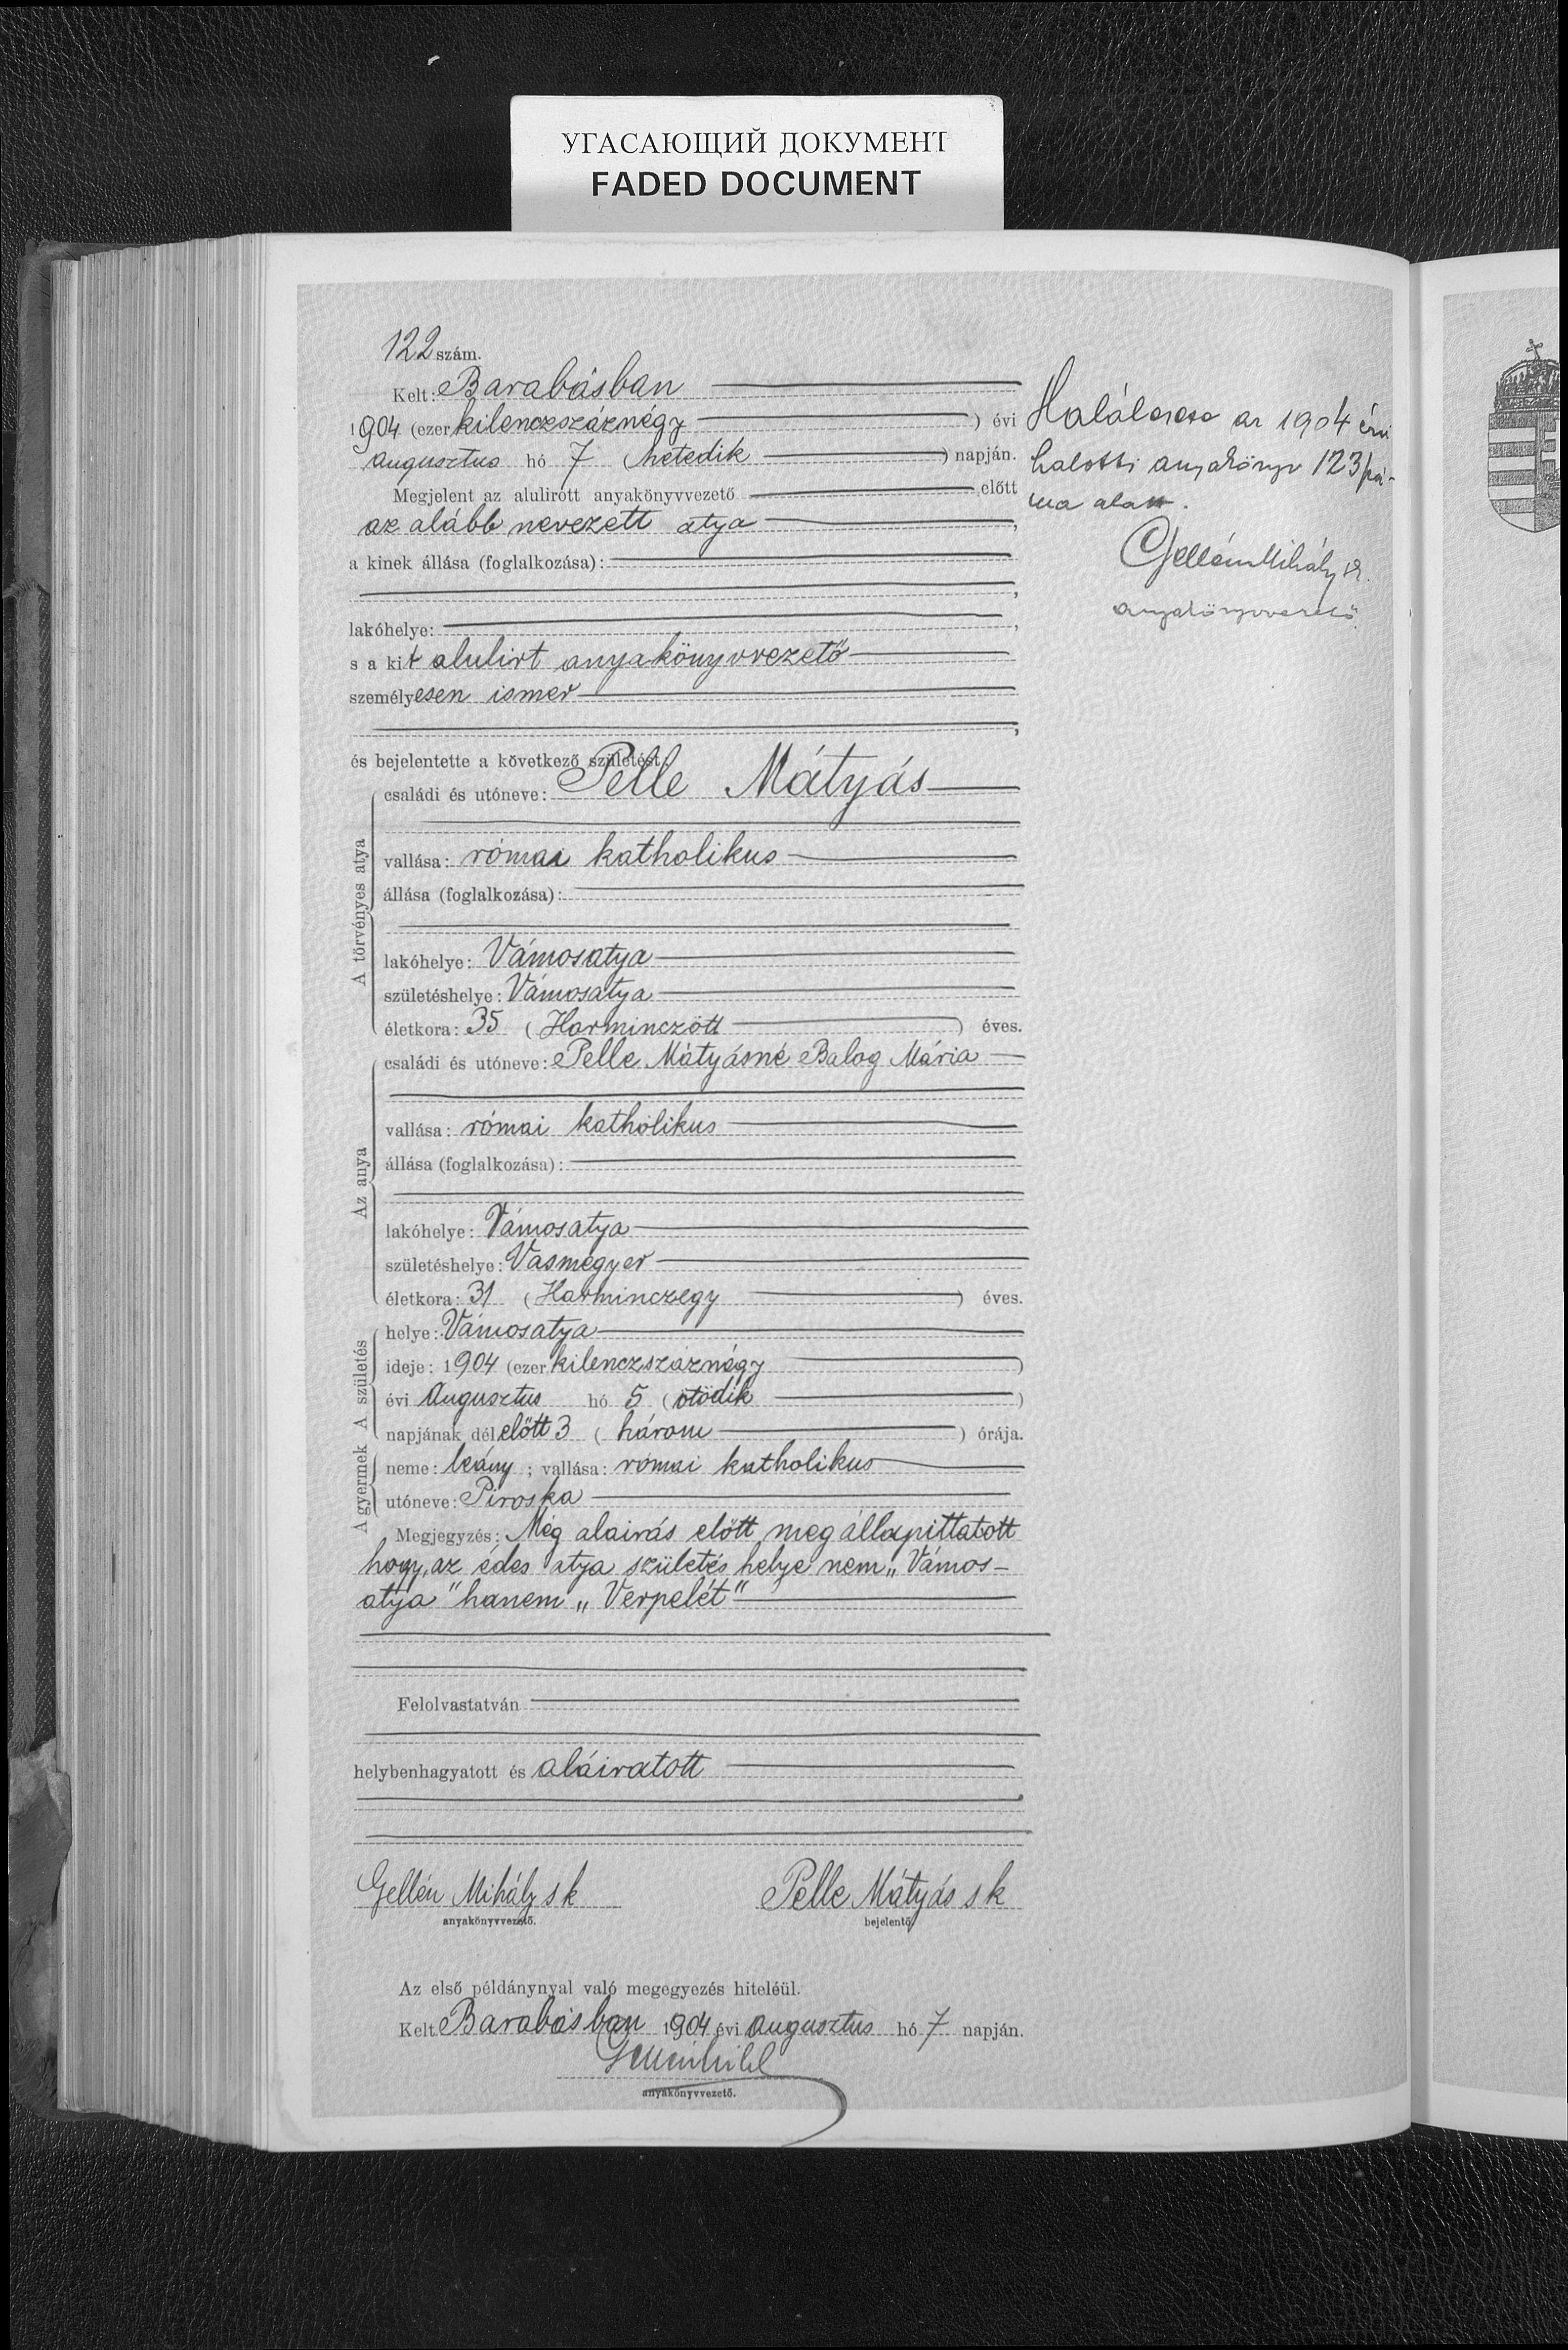 УГАСАЮЩИЙ ДОКУМЕНТ
FADED DOCUMENT
122 szám.
Kelt: Barabásban
1904 (ezer kilenczszáznégy) évi
augusztus hó 7 (hetedik) napján.
Megjelent az alulirott anyakönyvvezető előtt
az alább nevezett atya,
a kinek állása (foglalkozása):
,
lakóhelye: ,
s a kit alulirt anyakönyvvezető
személyesen ismer
,
és bejelentette a következő születést:
A törvényes atya
családi és utóneve: Pelle Mátyás
vallása: római katholikus
állása (foglalkozása):
lakóhelye: Vámosatya
születéshelye: Vámosatya
életkora: 35 (Harminczött) éves.
Az anya
családi és utóneve: Pelle Mátyásné Balog Mária
vallása: római katholikus
állása (foglalkozása):
lakóhelye: Vámosatya
születéshelye: Vasmegyer
életkora: 31 (Harminczegy) éves.
A születés
helye: Vámosatya
ideje: 1904 (ezer kilenczszáznégy)
évi Augusztus hó 5 (ötödik)
napjának délelőtt 3 (három) órája.
A gyermek
neme: leány; vallása: római katholikus
utóneve: Piroska
Megjegyzés: Még alairás előtt megállapittatott
hogy az édes atya születés helye nem „Vámos-
atya" hanem „Verpelét"
Felolvastatván
helybenhagyatott és aláiratott
Gellén Mihály sk Pelle Mátyás sk
anyakönyvvezető. bejelentő
Az első példánynyal való megegyezés hiteléül.
Kelt Barabásban 1904 évi augusztus hó 7 napján.
anyakönyvvezető.
Halálesete az 1904 évi
halotti anyakönyv 123 szá-
ma alatt.
Gellén Mihály
anyakönyvvezető